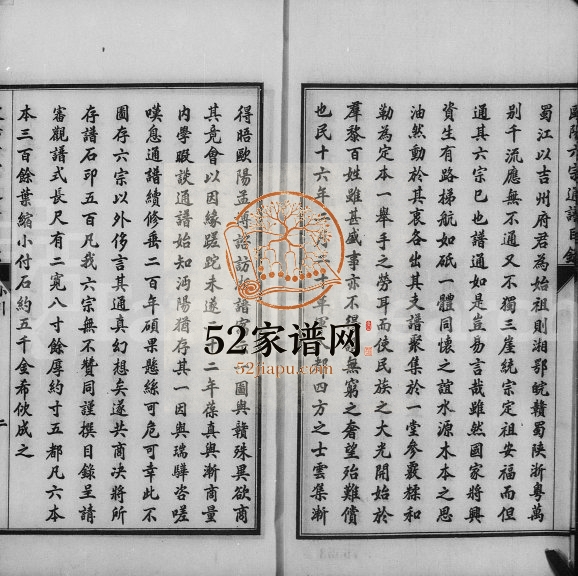 歐陽六宗通譜目錄
蜀江以吉州府君為始祖則湘鄂皖贛蜀陝浙粵萬
別千流應無不通又不獨三崖統宗定祖安福而但
通其六宗已也譜通如是豈易言哉雖然國家將興
資生有路梯航如砥一體同懷之誼水源木本之思
油然動於其衷各出其支譜聚集於一堂參覈糅和
勒為定本一舉手之勞耳而使民族之大光開始於
羣黎百姓雖甚盛事亦不得無窮之奢望殆難償
也民十六年二月二十軍都四方之士雲集漸
得晤歐陽孟博諮訪譜圖與贛殊異欲商
其竟會以因緣蹉跎未遂二年葆真與漸商量
內學暇談通譜始知沔陽猶存其一因與瑞驊咨嗟
嘆息通譜續修垂二百年碩果懸絲可危可幸此不
圖存六宗以外侈言其通真幻想矣遂共商決將所
存譜石印五百凡我六宗無不贊同謹撰目錄呈請
審觀譜式長尺有二寬八寸餘厚約寸五都凡六本
本三百餘葉縮小付石約五千金希依成之
二
52家谱网
52jiapu.com